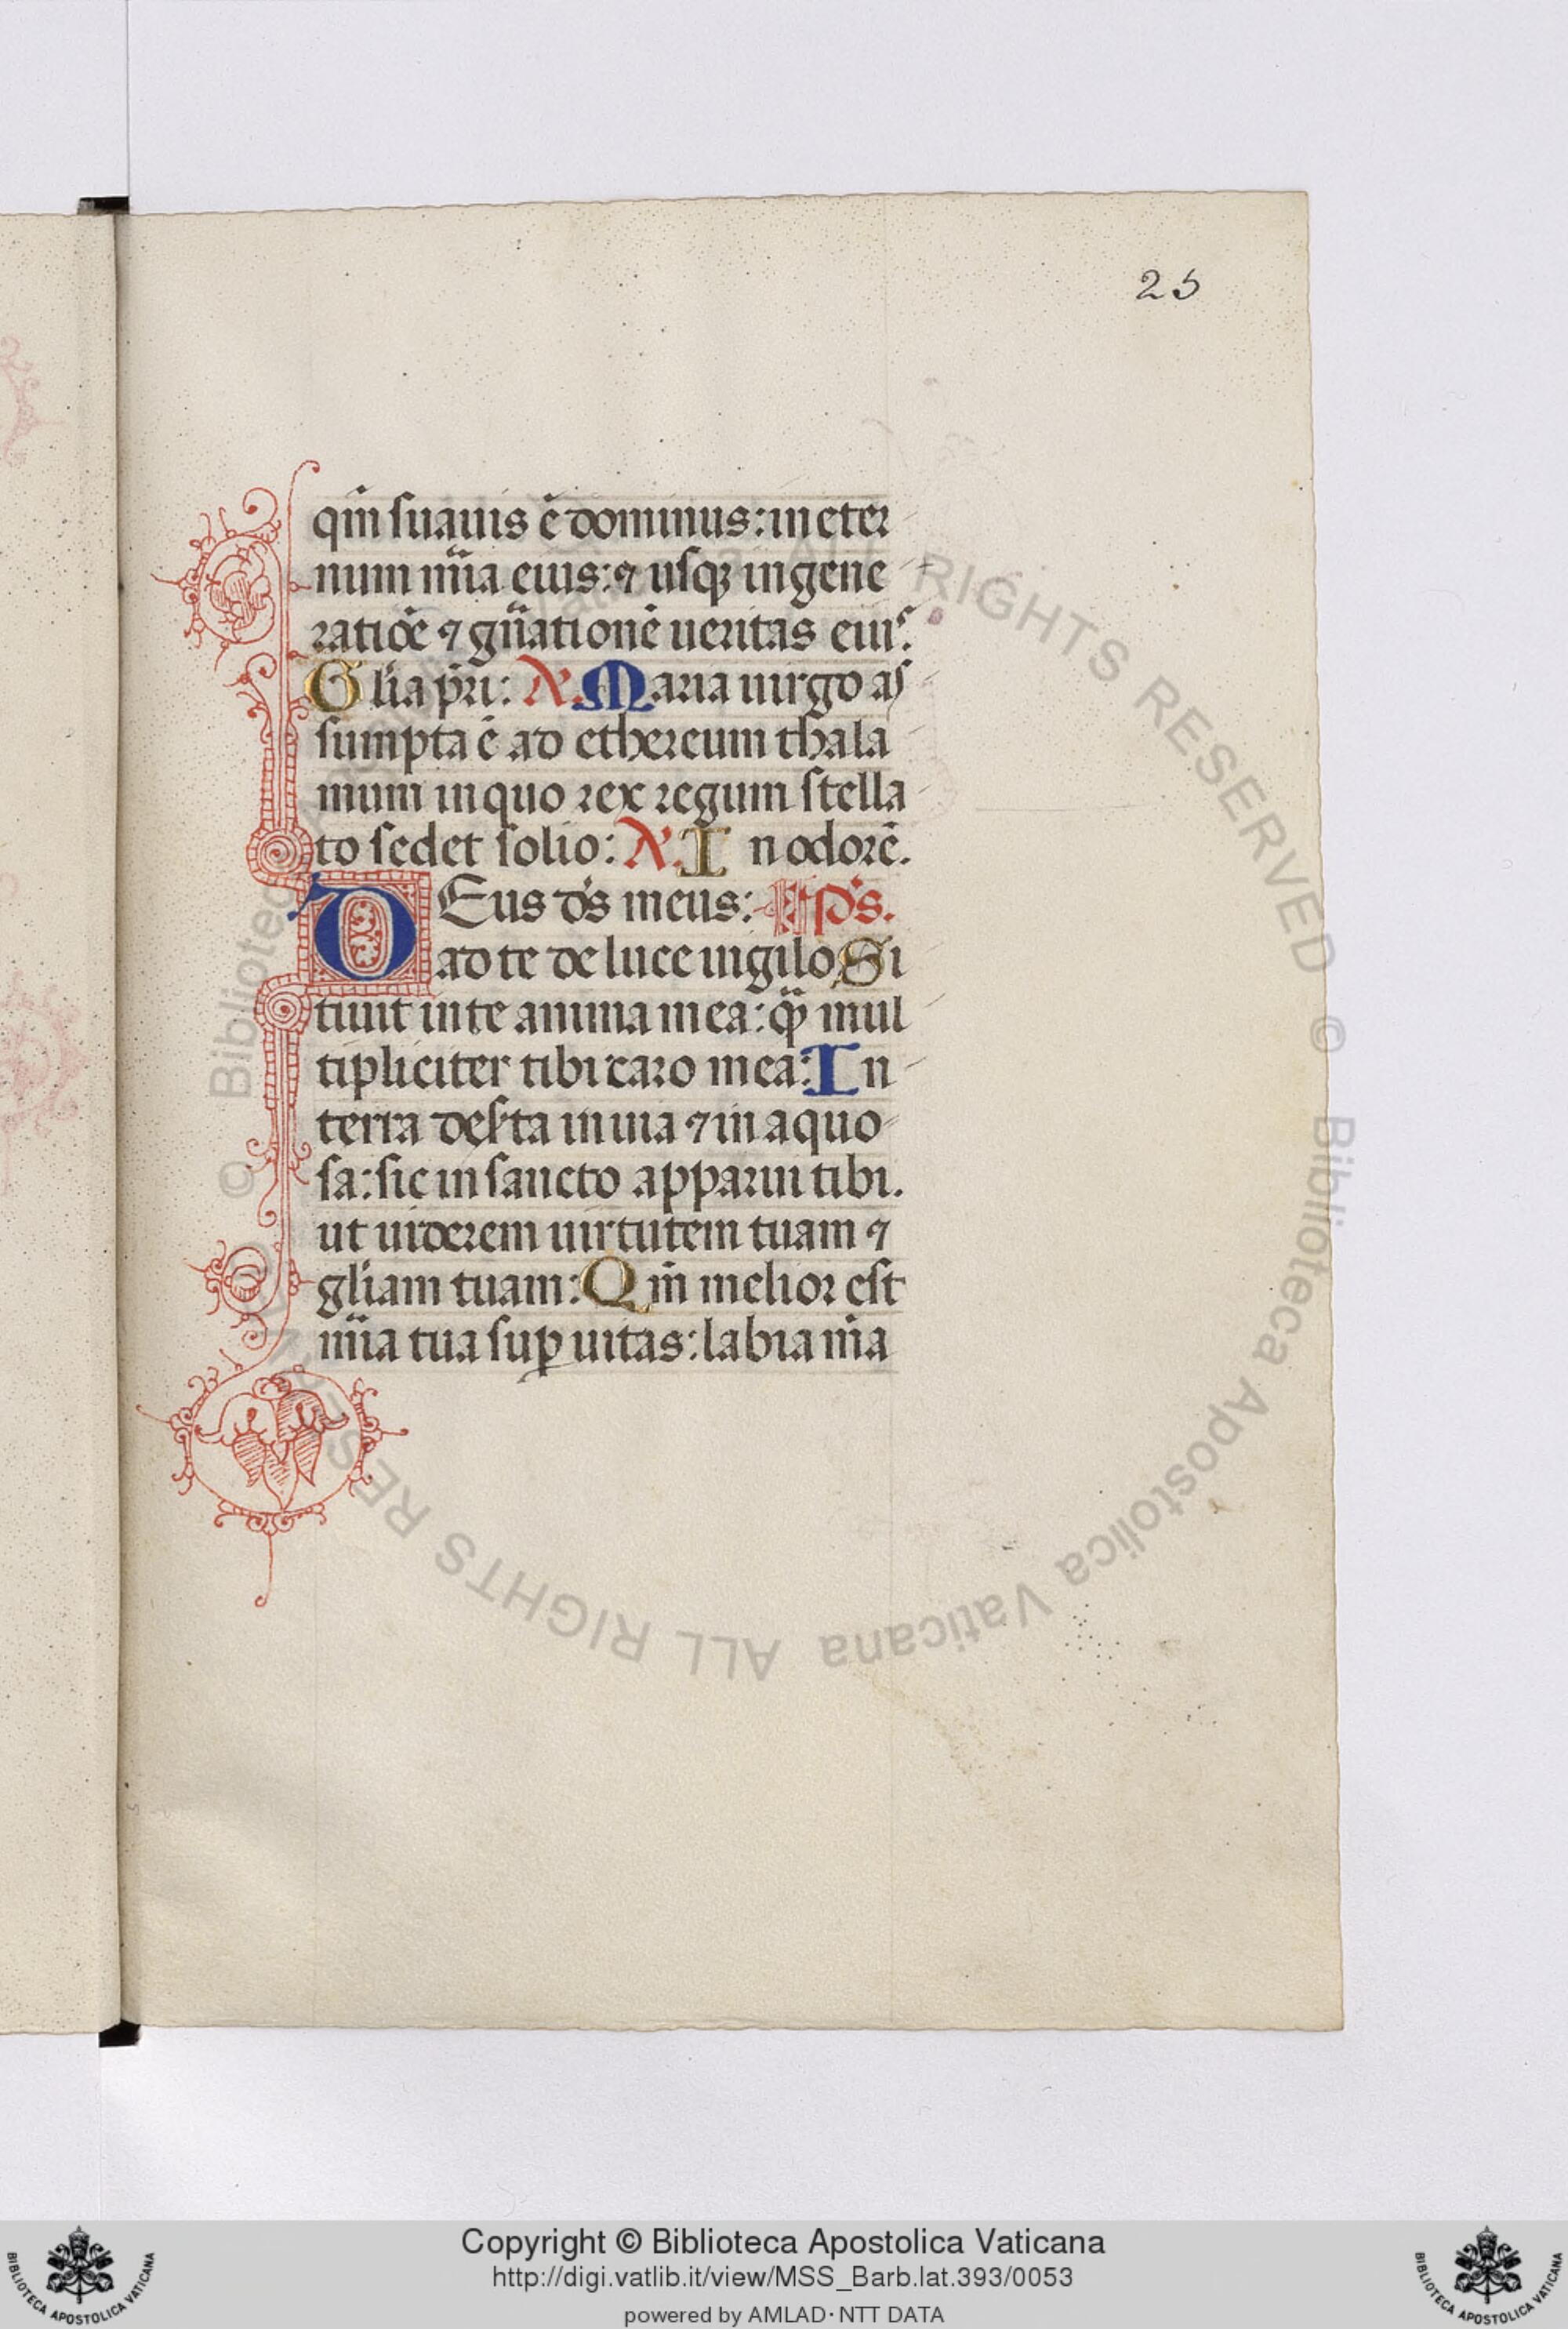 25
qm̄ suauis ē dominus: in eter
num mīa eius: ⁊ usqꝫ in gene
ratiōe ⁊ gn̄ationē ueritas eiuˢ.
Glīa pr̄i: A. Maria uirgo as
sumpta ē ad ethereum thala
mum in quo rex regum stella
to sedet solio: A. In odorē.
DEus ds̄ meus: ps̄.
ad te de luce uigilo Si
tiuit in te anima mea: qꝫ̄ mul
tipliciter tibi caro mea: In
terra des̄ta inuia ⁊ in aquo
sa: sic in sancto apparui tibi.
ut uiderem uirtutem tuam ⁊
glīam tuam: Qm̄ melior est
mīa tua suꝑ uitas: labia m̄a
© Biblioteca Apostolica Vaticana ALL RIGHTS RESERVED
© Biblioteca Apostolica Vaticana ALL RIGHTS RESERVED
Copyright © Biblioteca Apostolica Vaticana
http://digi.vatlib.it/view/MSS_Barb.lat.393/0053
powered by AMLAD·NTT DATA
BIBLIOTECA APOSTOLICA VATICANA
BIBLIOTECA APOSTOLICA VATICANA